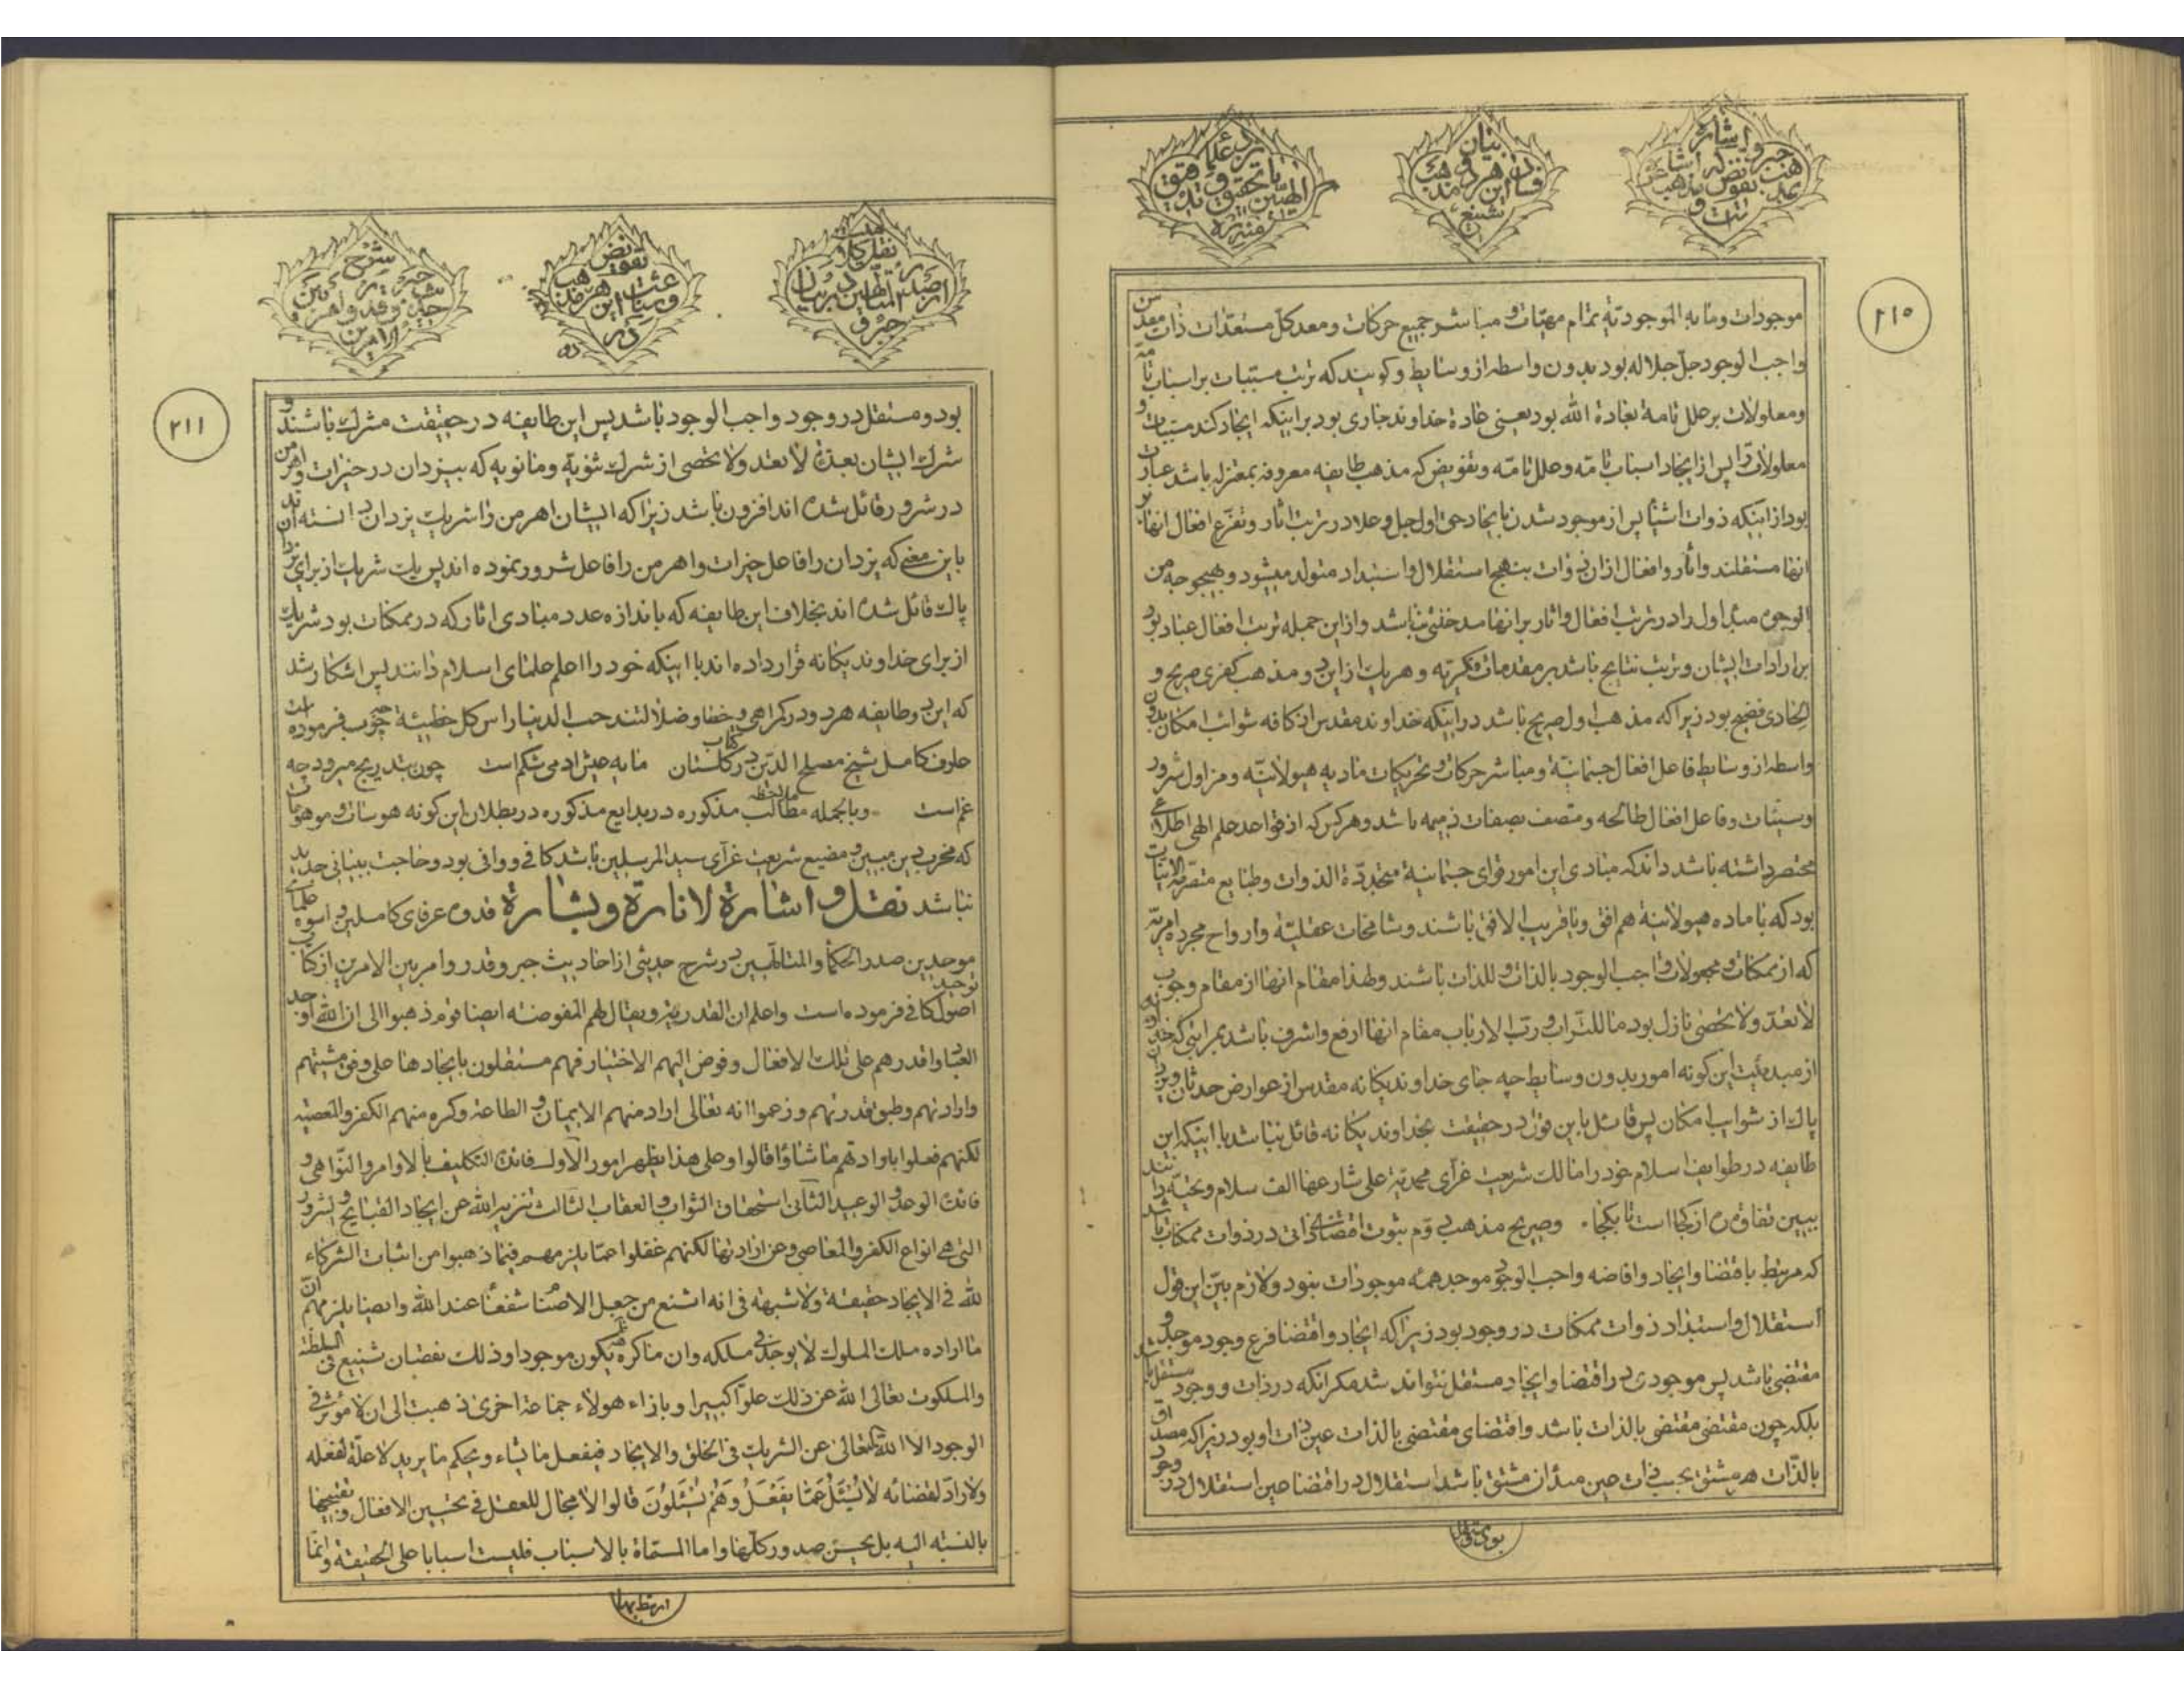 اشاره
جبر و
بیان
فساد این هر دو مذهب
تشنیع
۲۱۰
موجودات و ما به الموجودیّهٔ تمام مهیّات و مباشر جمیع حرکات و معد کلّ مستعدّات ذات مقدس
واجب الوجود جلّ جلاله بود بدون واسطه از وسایط و کویند که ترتب مسبّبات بر اسباب تامّه
و معلولات بر علل تامة بعادة الله بود یعنی عادة خداوند جاری بود بر اینکه ایجاد کند مسبّبات و
معلولات را پس از ایجاد اسباب تامّه و علل تامّه و تفویض که مذهب طایفه معروفه بمعتزله باشد عبارت
بود از اینکه ذوات اشیا پس از موجود شدن بایجاد حق اول جل و علا در ترتب اثار و تفرّع افعال انها بر
انها مستقلند و اثار و افعال ازان ذوات بنهج استقلال و استبداد متولد میشود و بهیچوجه من
الوجوه مبدٔ اول را در ترتب افعال و اثار بر انها مدخلیّتی نباشد و ازاین جمله ترتب افعال عباد بود
بر ارادات ایشان و ترتب نتایج باشد بر مقدمات فکریّه و هریک از این دو مذهب کفری صریح و
الحادی فضیح بود زیرا که مذهب اول صریح باشد در اینکه خداوند مقدس از کافه شوائب امکان بدون
واسطه از وسایط فاعل افعال جسمانیّه و مباشر حرکات و تحریکات مادیه هیولانیّه و مزاول شرور
و سیّئات و فاعل افعال طالحه و متصف بصفات ذمیمه باشد و هر کس که از قواعد علم الهی اطلاعی
مختصر داشته باشد داند که مبادی این امور قوای جسمانیة متجدّدة الذوات و طبایع متصرّمة الانیّات
بود که با ماده هیولانیّة هم افق و یا قریب الافق باشند و شامخات عقلیّة و ارواح مجرده امریّه
که از ممکنات و مجعولات واجب الوجود بالذات و للذات باشند و لهذا مقام انها از مقام وجوب
لا تعدّ و لا تحصی نازل بود ما للتراب و رب الارباب مقام انها ارفع و اشرف باشد بمراتبی که
از مبدئیت این کونه امور بدون وسایط چه جای خداوند یکانه مقدس از عوارض حدثان و یزدان
پاک از شوایب امکان پس قائل باین قول در حقیقت بخداوند یکانه قائل نباشد با اینکه این
طایفه در طوایف اسلام خود را مالک شریعت غرّای محمدیّة علی شارعها الف سلام و تحیّه دانند
ببین تفاوت ره از کجا است تا بکجا. و صریح مذهب دوّم ثبوت اقتضای ذاتی در ذوات ممکنات باشد
که مرتبط باقتضا و ایجاد و افاضه واجب الوجود موجد همه موجودات نبود و لازم بیّن این قول
استقلال و استبداد ذوات ممکنات در وجود بود زیرا که ایجاد و اقتضا فرع وجود موجد و
مقتضی باشد پس موجودی در اقتضا و ایجاد مستقل نتواند شد مکر انکه در ذات و وجود مستقل باشد
بلکه چون مقتضی مقتضی بالذات باشد و اقتضای مقتضی بالذات عین ذات او بود زیرا که مصداق
بالذّات هر مشتق بحسب ذات عین مبدٔ ان مشتق باشد استقلال در اقتضا عین استقلال در وجود
بود و مستقل
نقل کلام
از صدر المتألهین در بیان
جبر و
تفویض
شرح
۲۱۱
بود و مستقل در وجود واجب الوجود باشد پس این طایفه در حقیقت مشرک باشند و
شرک ایشان بعدة لا تعد و لا تحصی از شرک ثنویّه و مانویه که بیزدان در خیرات و اهرمن
در شرور قائل شده اند افزون باشد زیرا که ایشان اهرمن را شریک یزدان دانسته اند
باین معنی که یزدان را فاعل خیرات و اهرمن را فاعل شرور نموده اند پس یک شریک از برای یزدان
پاک قائل شده اند بخلاف این طایفه که باندازه عدد مبادی اثار که در ممکنات بود شریک
از برای خداوند یکانه قرار داده اند با اینکه خود را اعلم علمای اسلام دانند پس اشکار شد
که این دو طایفه هردو در کمراهی و خطا و ضلالتند حب الدنیا راس کل خطیئة چه خوب فرموده است
عارف کامل شیخ مصلح الدّین در کتاب کلستان مایه عیش ادمی شکم است چون بتدریج میرود چه
غم است - و بالجمله ملاحظه مطالب مذکوره در بدایع مذکوره در بطلان این کونه هوسات و موهومات
که مخرب دین مبین و مضیع شریعت غرّای سید المرسلین باشد کافی و وافی بود و حاجت ببیانی جدید
نباشد نقل و اشارة لانارة و بشارة قدوه عرفای کاملین و اسوه علمای
موحدین صدر الحکما و المتالّهین در شرح حدیثی از احادیث جبر و قدر و امر بین الامرین از کتاب توحید
اصول کافی فرموده است و اعلم ان القدریة و یقال لهم المفوضه ایضا قوم ذهبوا الی ان الله اوجد
العباد و اقدرهم علی تلک الافعال و فوض الیهم الاختیار فهم مستقلون بایجادها علی وفق مشیّتهم
و ارادتهم و طبق قدرتهم و زعموا انه تعالی اراد منهم الایمان و الطاعة و کره منهم الکفر و المعصیه
لکنهم فعلوا بارادتهم ما شاؤا قالوا و علی هذا یظهر امور الاول فائدة التکلیف بالاوامر و النّواهی و
فائدة الوعد و الوعید الثانی استحقاق الثواب و العقاب الثالث تنزیه الله عن ایجاد القبایح و الشرور
التی هی انواع الکفر و المعاصی و عن ارادتها لکنهم غفلوا عمّا یلزمهم فیما ذهبوا من اثبات الشرکاء
لله فی الایجاد حقیقة و لا شبهة فی انه اشنع من جعل الاصنام شفعٰا عند الله و ایضا یلزمهم انّ
ما اراده ملک الملوک لا یوجد فی ملکه و ان ما کرهه یکون موجودا و ذلک نقصان شنیع فی السلطنة
و الملکوت تعالی الله عن ذلک علوّا کبیرا و بازاء هولاء جماعة اخری ذهبت الی ان لا مؤثر فی
الوجود الا الله المتعالی عن الشریک فی الخلق و الایجاد فیفعل ما یشاء و یحکم ما یرید لا علّة لفعله
و لا رادّ لقضائه لا یُسْئَلُ عَمّا یَفْعَلُ وَ هُمْ یُسْئَلُونَ قالوا لا مجال للعقل فی تحسین الافعال و تقبیحها
بالنسبه الیه بل یحسن صدور کلّها و اما المسمّاة بالاسباب فلیست اسبابا علی الحقیقة و انما
ارتبط بها